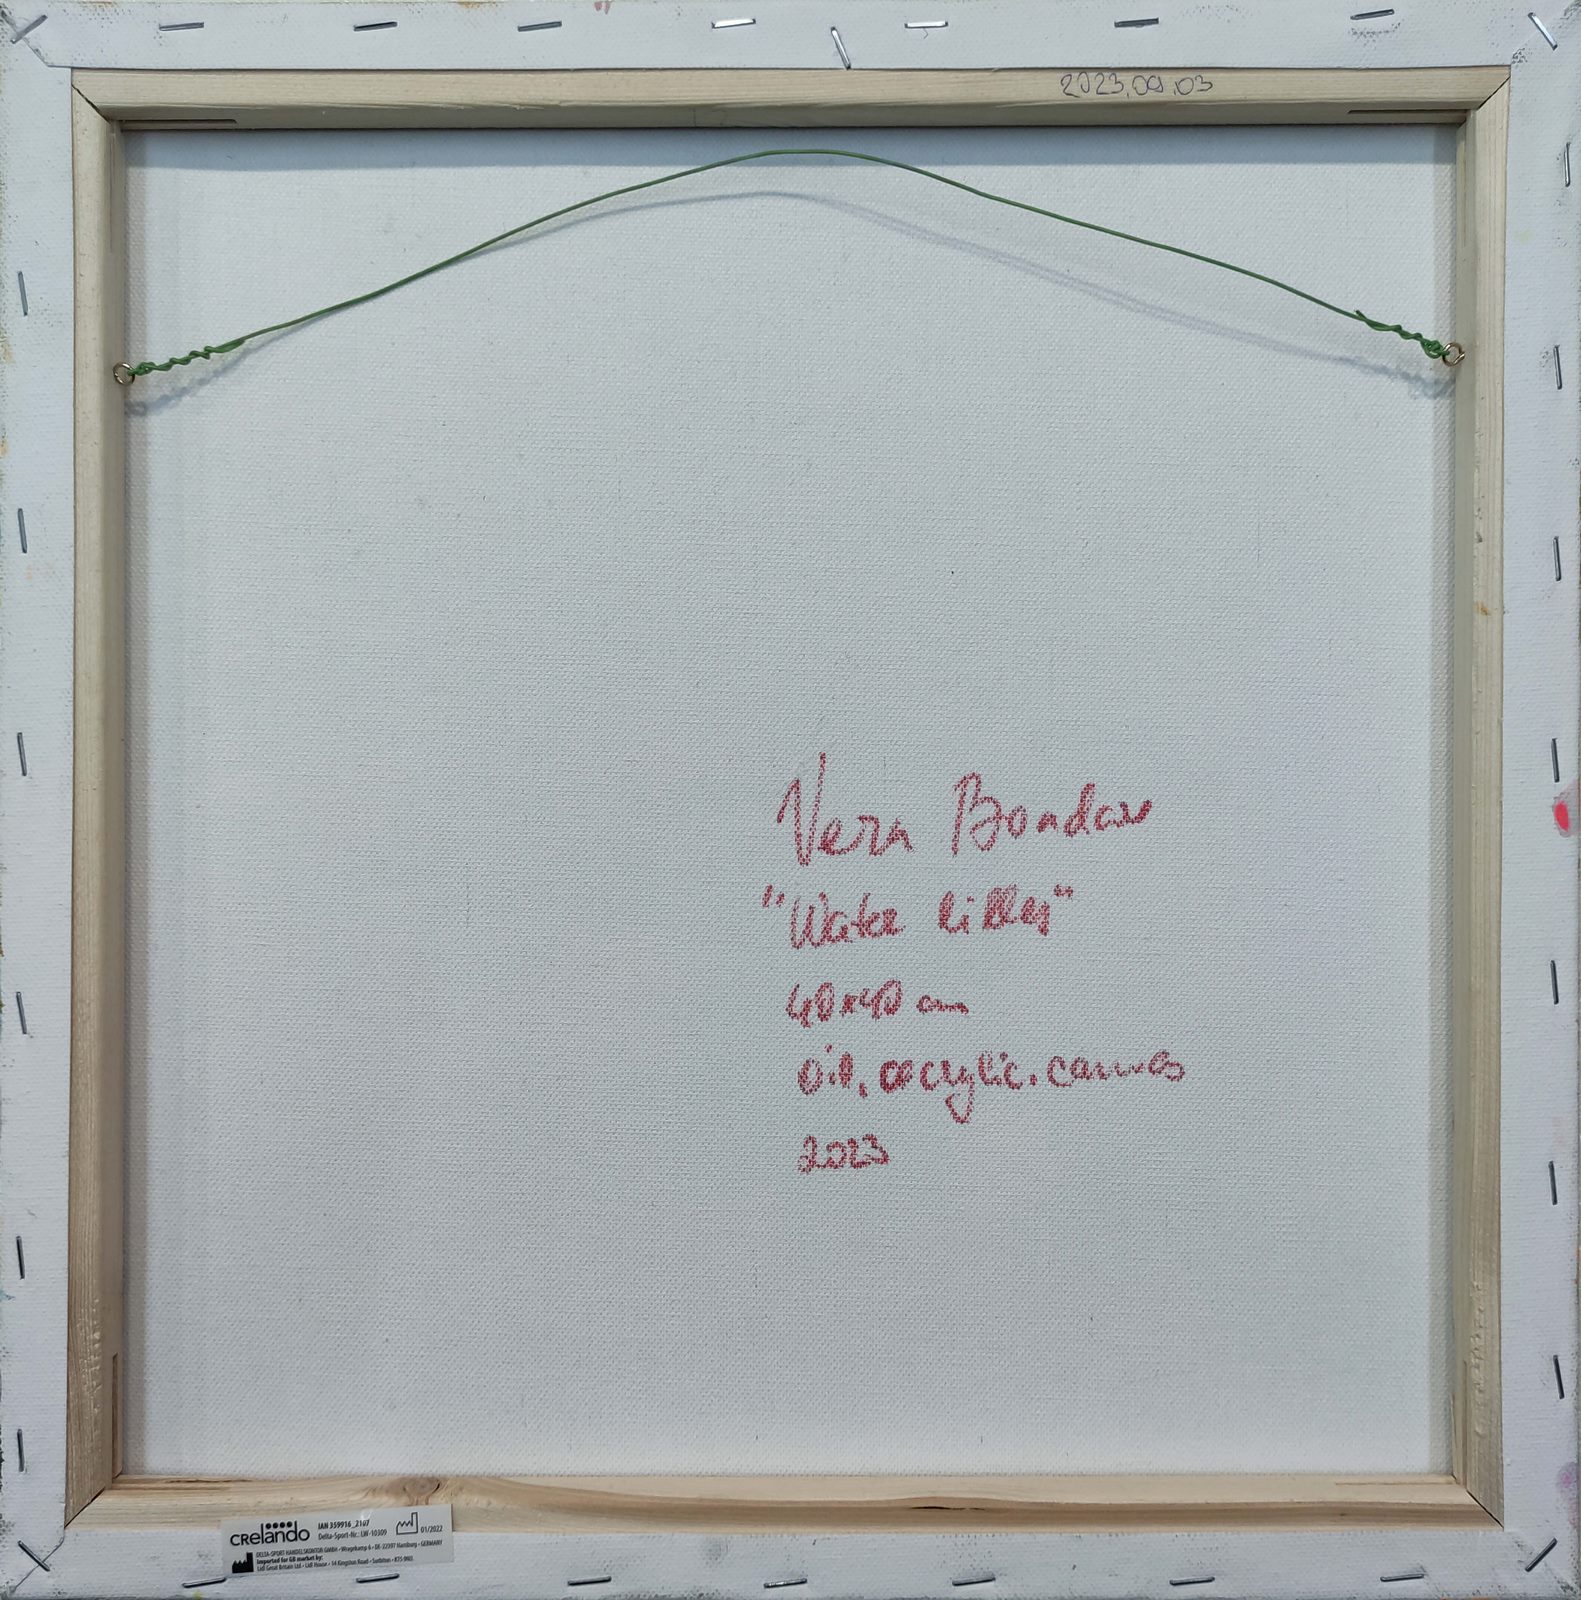 2023.09.03
Vera Bondar
"Water lillies"
40x40 cm
oil, acrylic. canvas
2023
CRelando
IAN 359916_2107
Delta-Sport-Nr.: LW-10309
01/2022
DELTA-SPORT HANDELSKONTOR GMBH • Wragekamp 6 • DE-22397 Hamburg • GERMANY
Imported for GB market by:
Lidl Great Britain Ltd • Lidl House • 14 Kingston Road • Surbiton • KT5 9NU